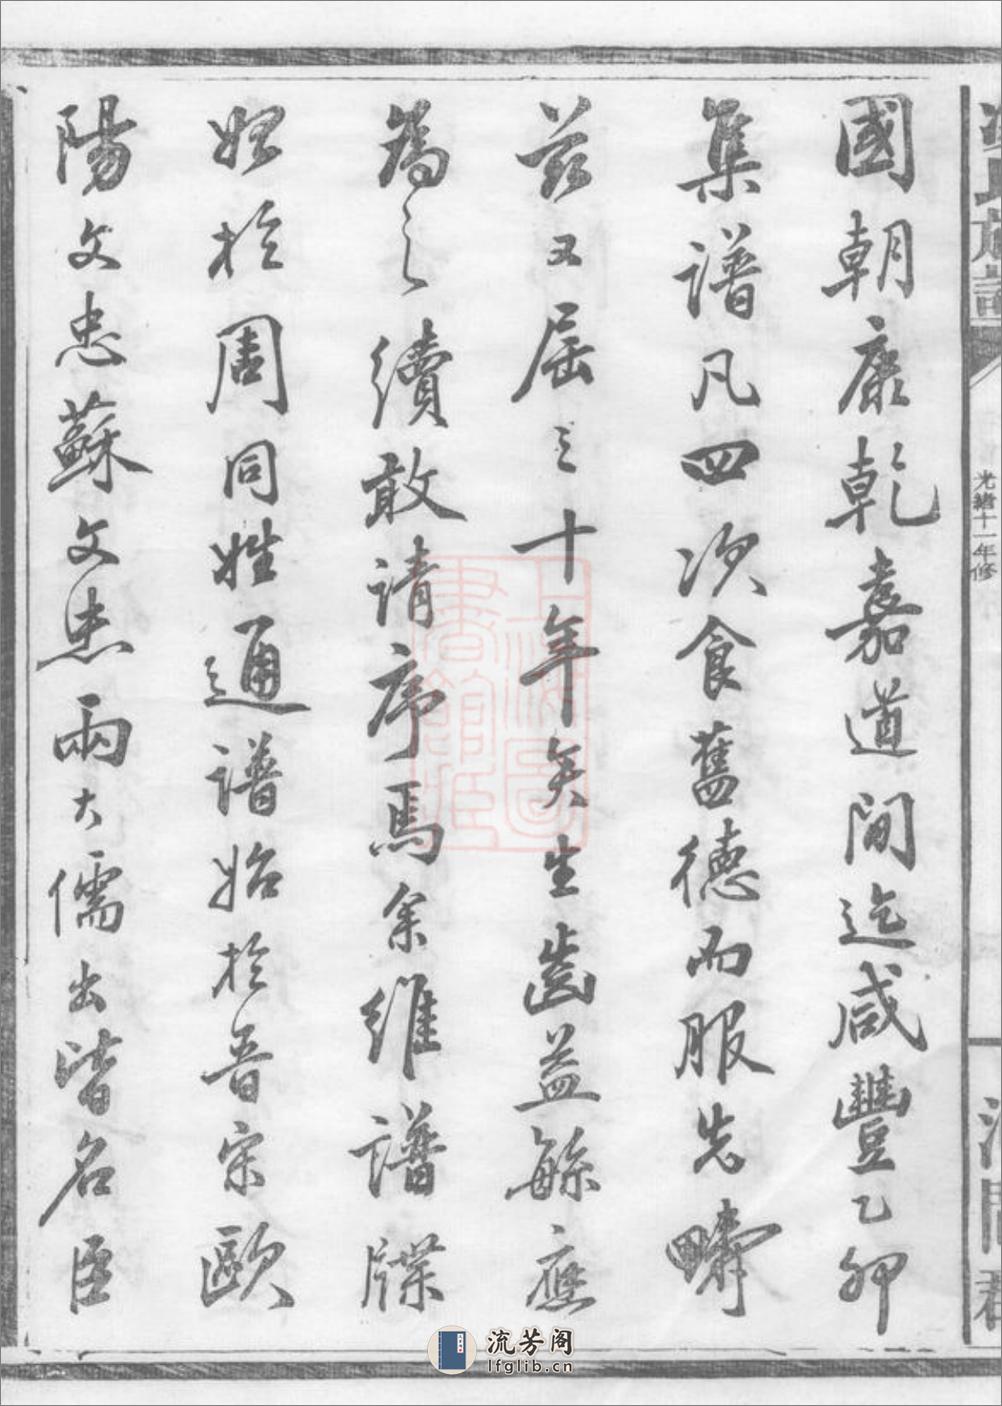 氏族譜
光緒十一年修
河間郡
國朝康乾嘉道間迄咸豐乙卯
集譜凡四次食舊德而服先疇
茲又屆三十年矣生齒益緐應
為之續敢請序焉余維譜牒
始於周同姓通譜始於晉宋歐
陽文忠蘇文忠兩大儒出皆名臣
上海圖書館藏
流芳阁
lfglib.cn